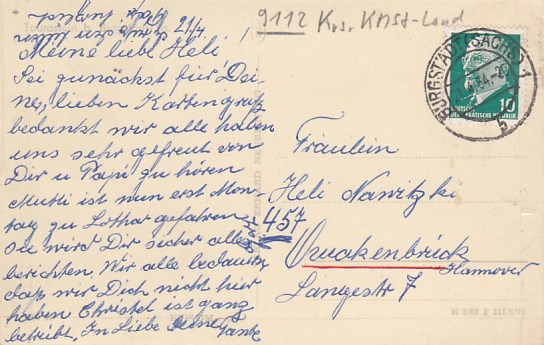 9112 Krs. KMSt-Land
21/4.
Meine liebe Heli
Sei zunächst für Dei
nes, lieben Kartengruß
bedankt wir alle haben
uns sehr gefreut von
Dir u Papi zu hören
Mutti ist nun erst Mon
tag zu Lothar gefahren
sie wird Dir sicher alles
berichten. Wir alle bedauern
daß wir Dich nicht hier
haben Christel ist ganz
betrübt. In Liebe Deine
Tante
BURGSTÄDT (SACHS) 1
10
DEUTSCHE DEMOKRATISCHE REPUBLIK
Fräulein
Heli Nawitzki
457
Quakenbrück
Hannover
Langestr 7